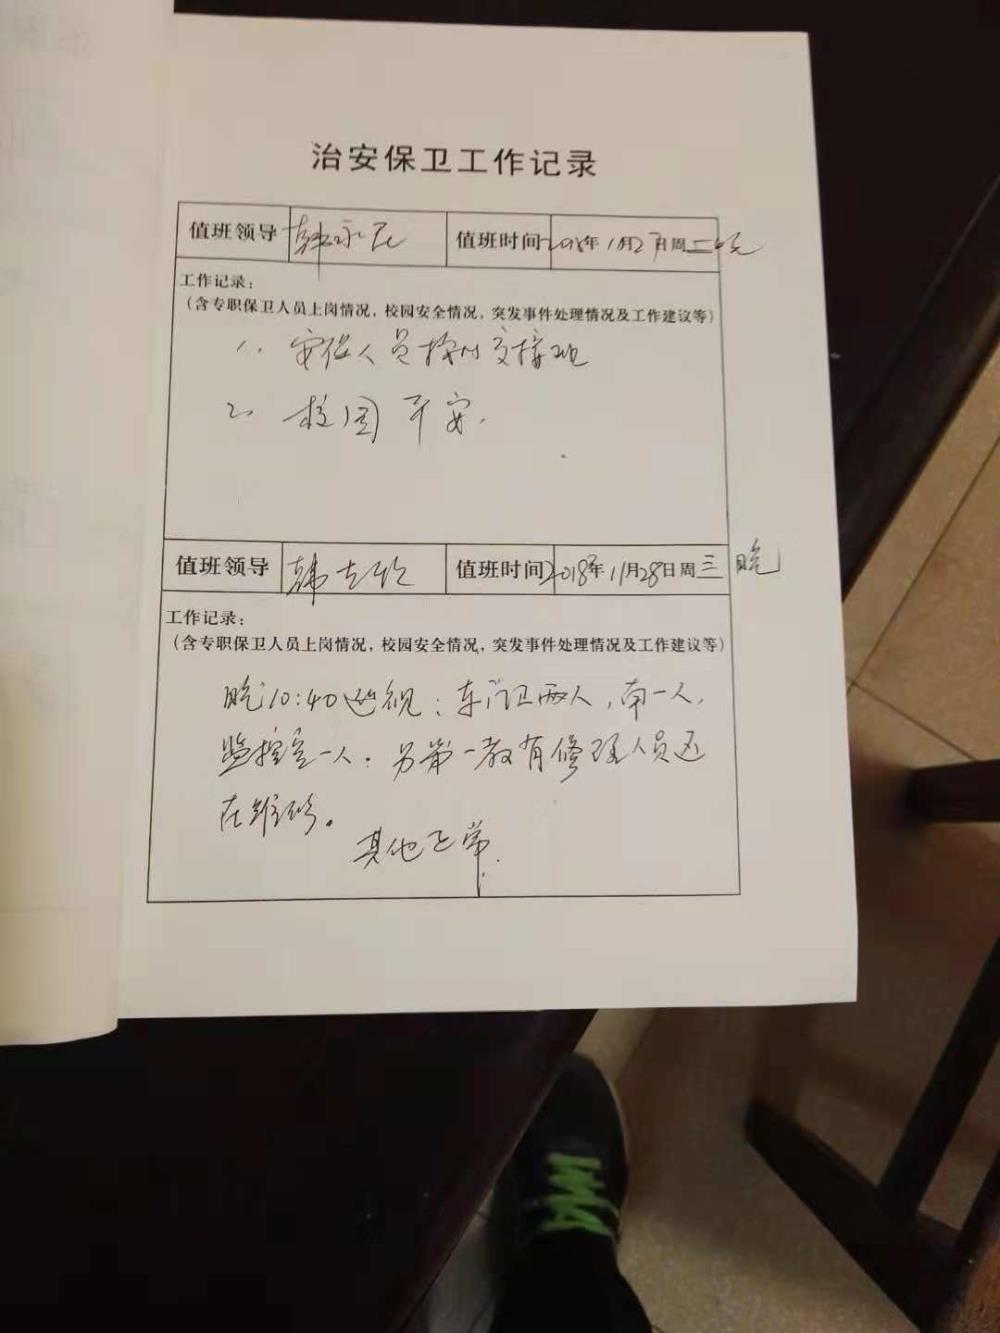 治安保卫工作记录
值班领导 韩永 值班时间 2018年11月27日周二晚
工作记录：
（含专职保卫人员上岗情况，校园安全情况，突发事件处理情况及工作建议等）
1. 安保人员按时交接班
2. 校园平安.
值班领导 韩 值班时间 2018年11月28日周三晚
工作记录：
（含专职保卫人员上岗情况，校园安全情况，突发事件处理情况及工作建议等）
晚10:40巡视：东门卫两人，南一人，
监控室一人。另第一教有修理人员还
在维修。
其他正常.